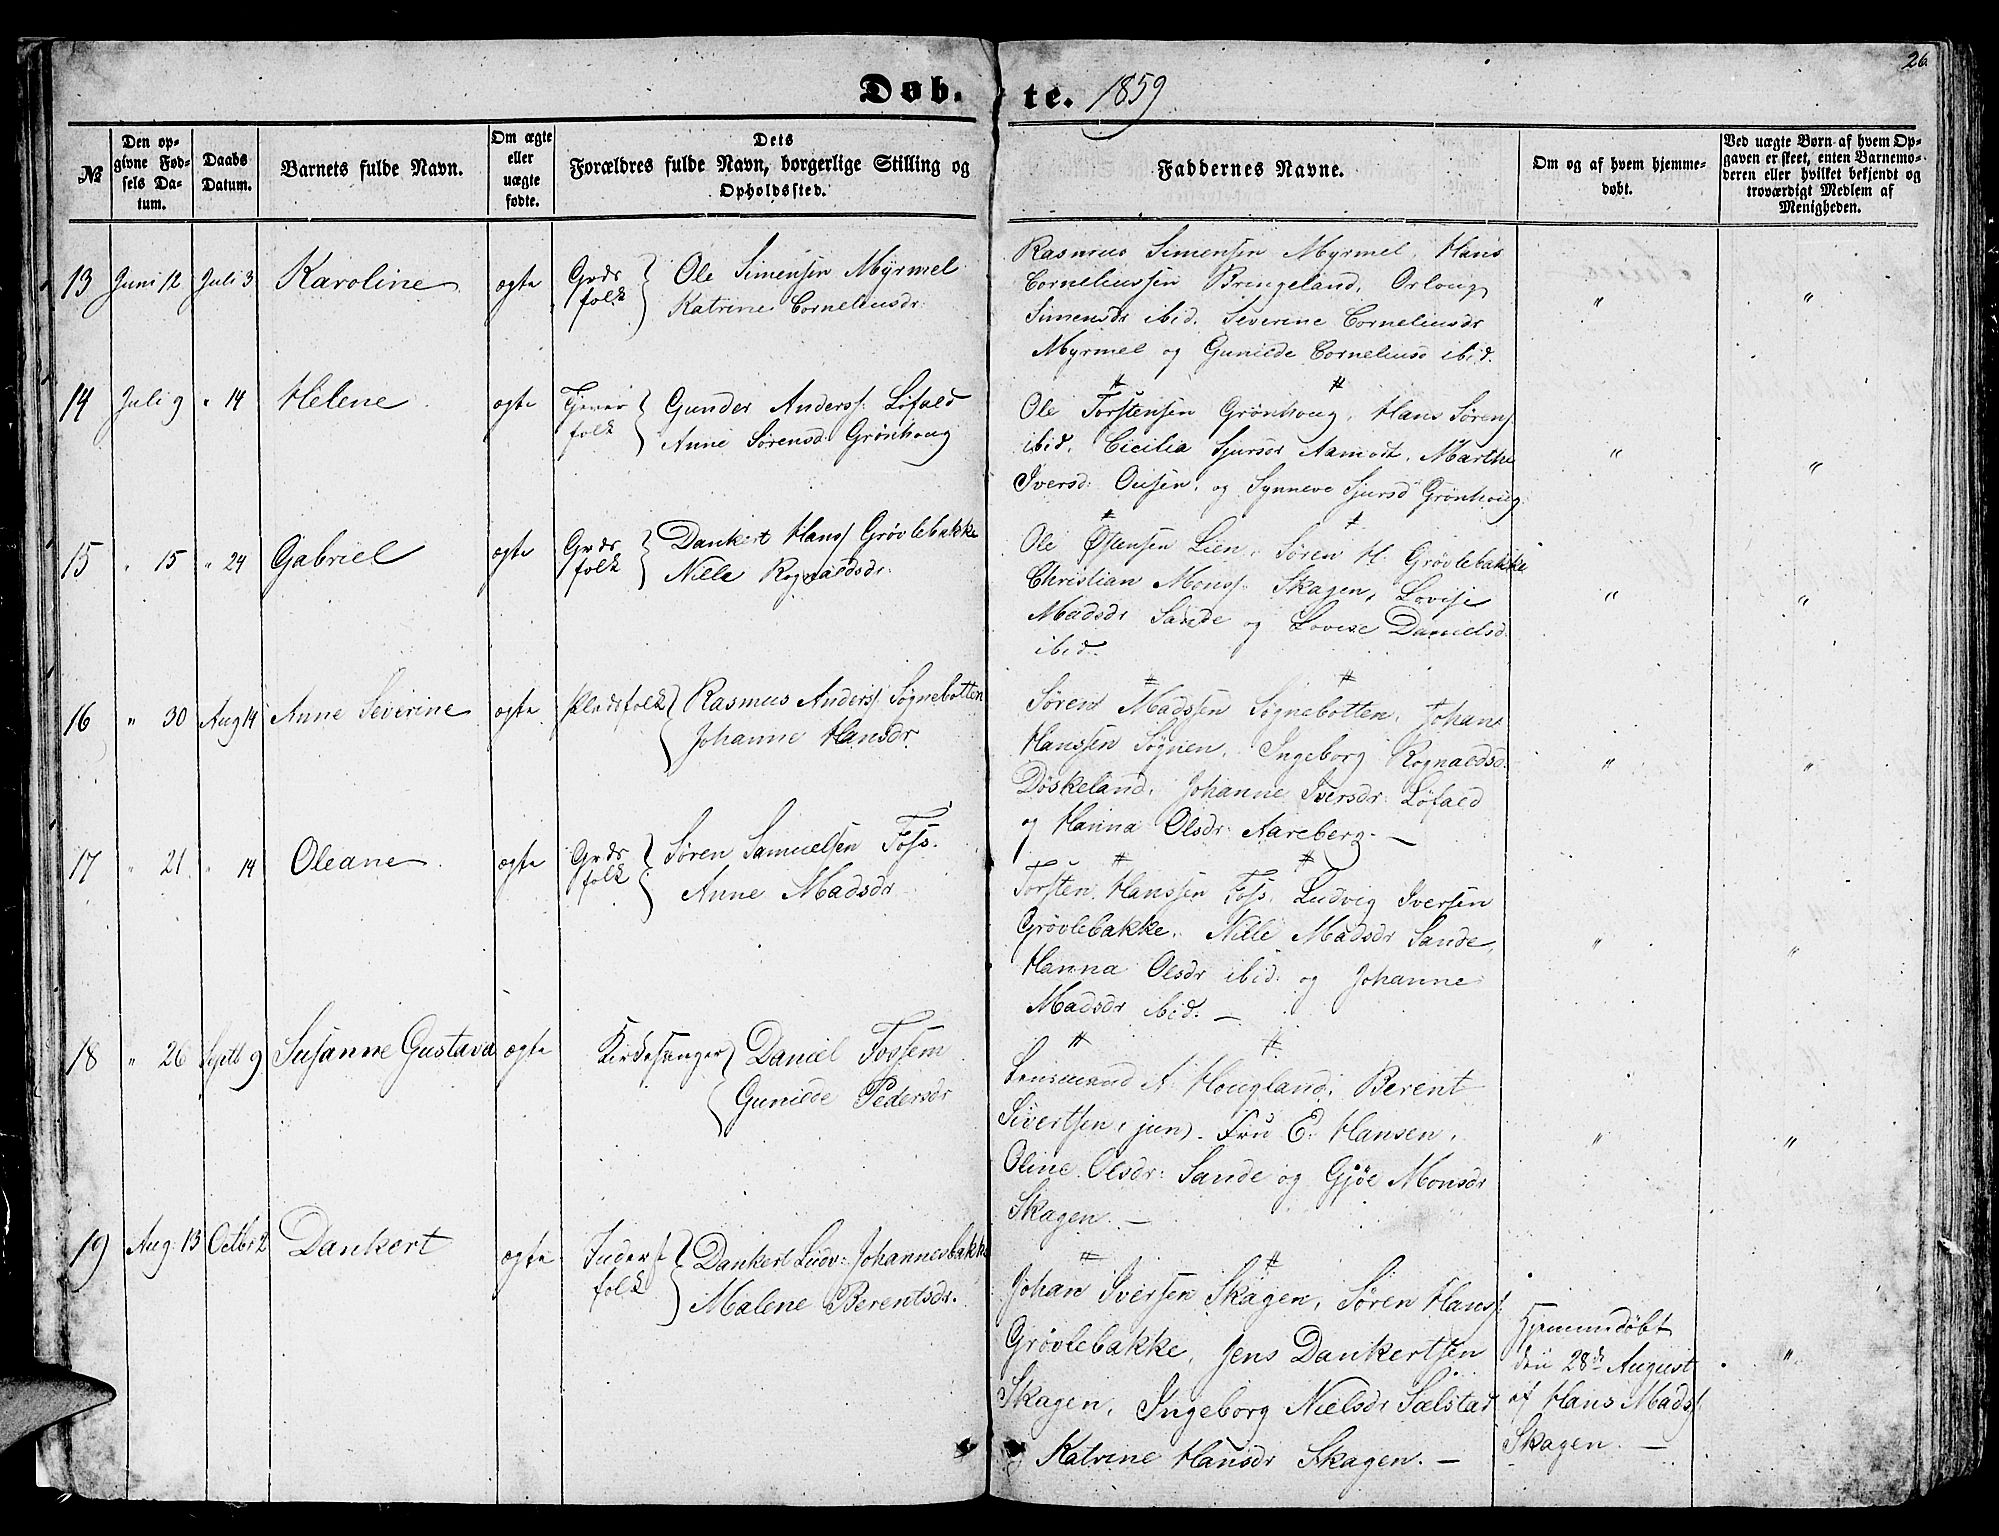 26
Døb- te. 1859
№
Den op-
givne Fød-
sels Da-
tum.
Daabs
Datum.
Barnets fulde Navn.
Om ægte
eller
uægte
fødte.
Dets
Forældres fulde Navn, borgerlige Stilling og
Opholdssted.
Faddernes Navne.
Om og af hvem hjemme-
døbt.
Ved uægte Børn af hvem Op-
gaven er skeet, enten Barnemo-
deren eller hvilket bekjendt og
troværdigt Medlem af
Menigheden.
13 Juni 12 Juli 3 Karoline ægte Grds folk Ole Simensen Myrmel
Katrine Corneliusdr:
Rasmus Simensen Myrmel, Hans
Corneliussen Bringeland, Orloug
Simensdr ibid. Severine Corneliusdr
Myrmel og Gunilde Corneliusd ibid.
" "
14 Juli 9 " 14 Helene ægte Tjener folk Gunder Anderss: Løfald
Anne Sørensd: Grönhoug
Ole Torstensen Grönhoug, Hans Sørens
ibid. Cicilia Sjursdr Aamodt, Marthe
Iversd: Ousen, og Synneve Sjursd Grönhoug
" "
15 " 15 " 24 Gabriel ægte Grds folk Dankert Hanss Grøvlebakke
Nille Rognaldsdr.
Ole Østensen Lien, Søren H: Grøvlebakke
Christian Monss: Skagen, Lovise
Madsdr Sande og Lovise Danielsd
ibid.
" "
16 " 30 Aug 14 Anne Severine ægte Pladsfolk Rasmus Anderss: Søgnebotten
Johanne Hansdr.
Søren Madssen Søgnebotten, Johan
Hanssen Søgnen, Ingeborg Rognaldsd.
Døskeland, Johanne Iversdr: Løfald
og Hanna Olsdr: Aareberg. —
" "
17 " 21 " 14 Oleane ægte Grds folk Søren Samuelsen Foss.
Anne Madsdr
Torsten Hanssen Foss, Ludvig Iversen
Grøvlebakke, Nille Madsdr Sande,
Hanna Olsdr ibid: og Johanne
Madsdr ibid. —
" "
18 " 26 Septb 9 Susanne Gustava ægte Kirkesanger Daniel Fossem
Gunilde Pedersdr
Lensmand A. Hougland, Berent
Sivertsen, jun). Fru E. Hansen,
Oline Olsdr: Sande og Gjøe Monsdr
Skagen. —
" "
19 Aug. 13 Octbr 2 Dankert ægte Inderst folk Dankert Ludv: Johannesbakke
Malene Berentsdr.
Johan Iversen Skagen, Søren Hanss.
Grøvlebakke, Jens Dankertsen
Skagen, Ingeborg Nielsdr Sælstad
Katrine Hansdr Skagen. —
Hjemmedøbt
den 28de August
af Hans Madss.
Skagen. —
"